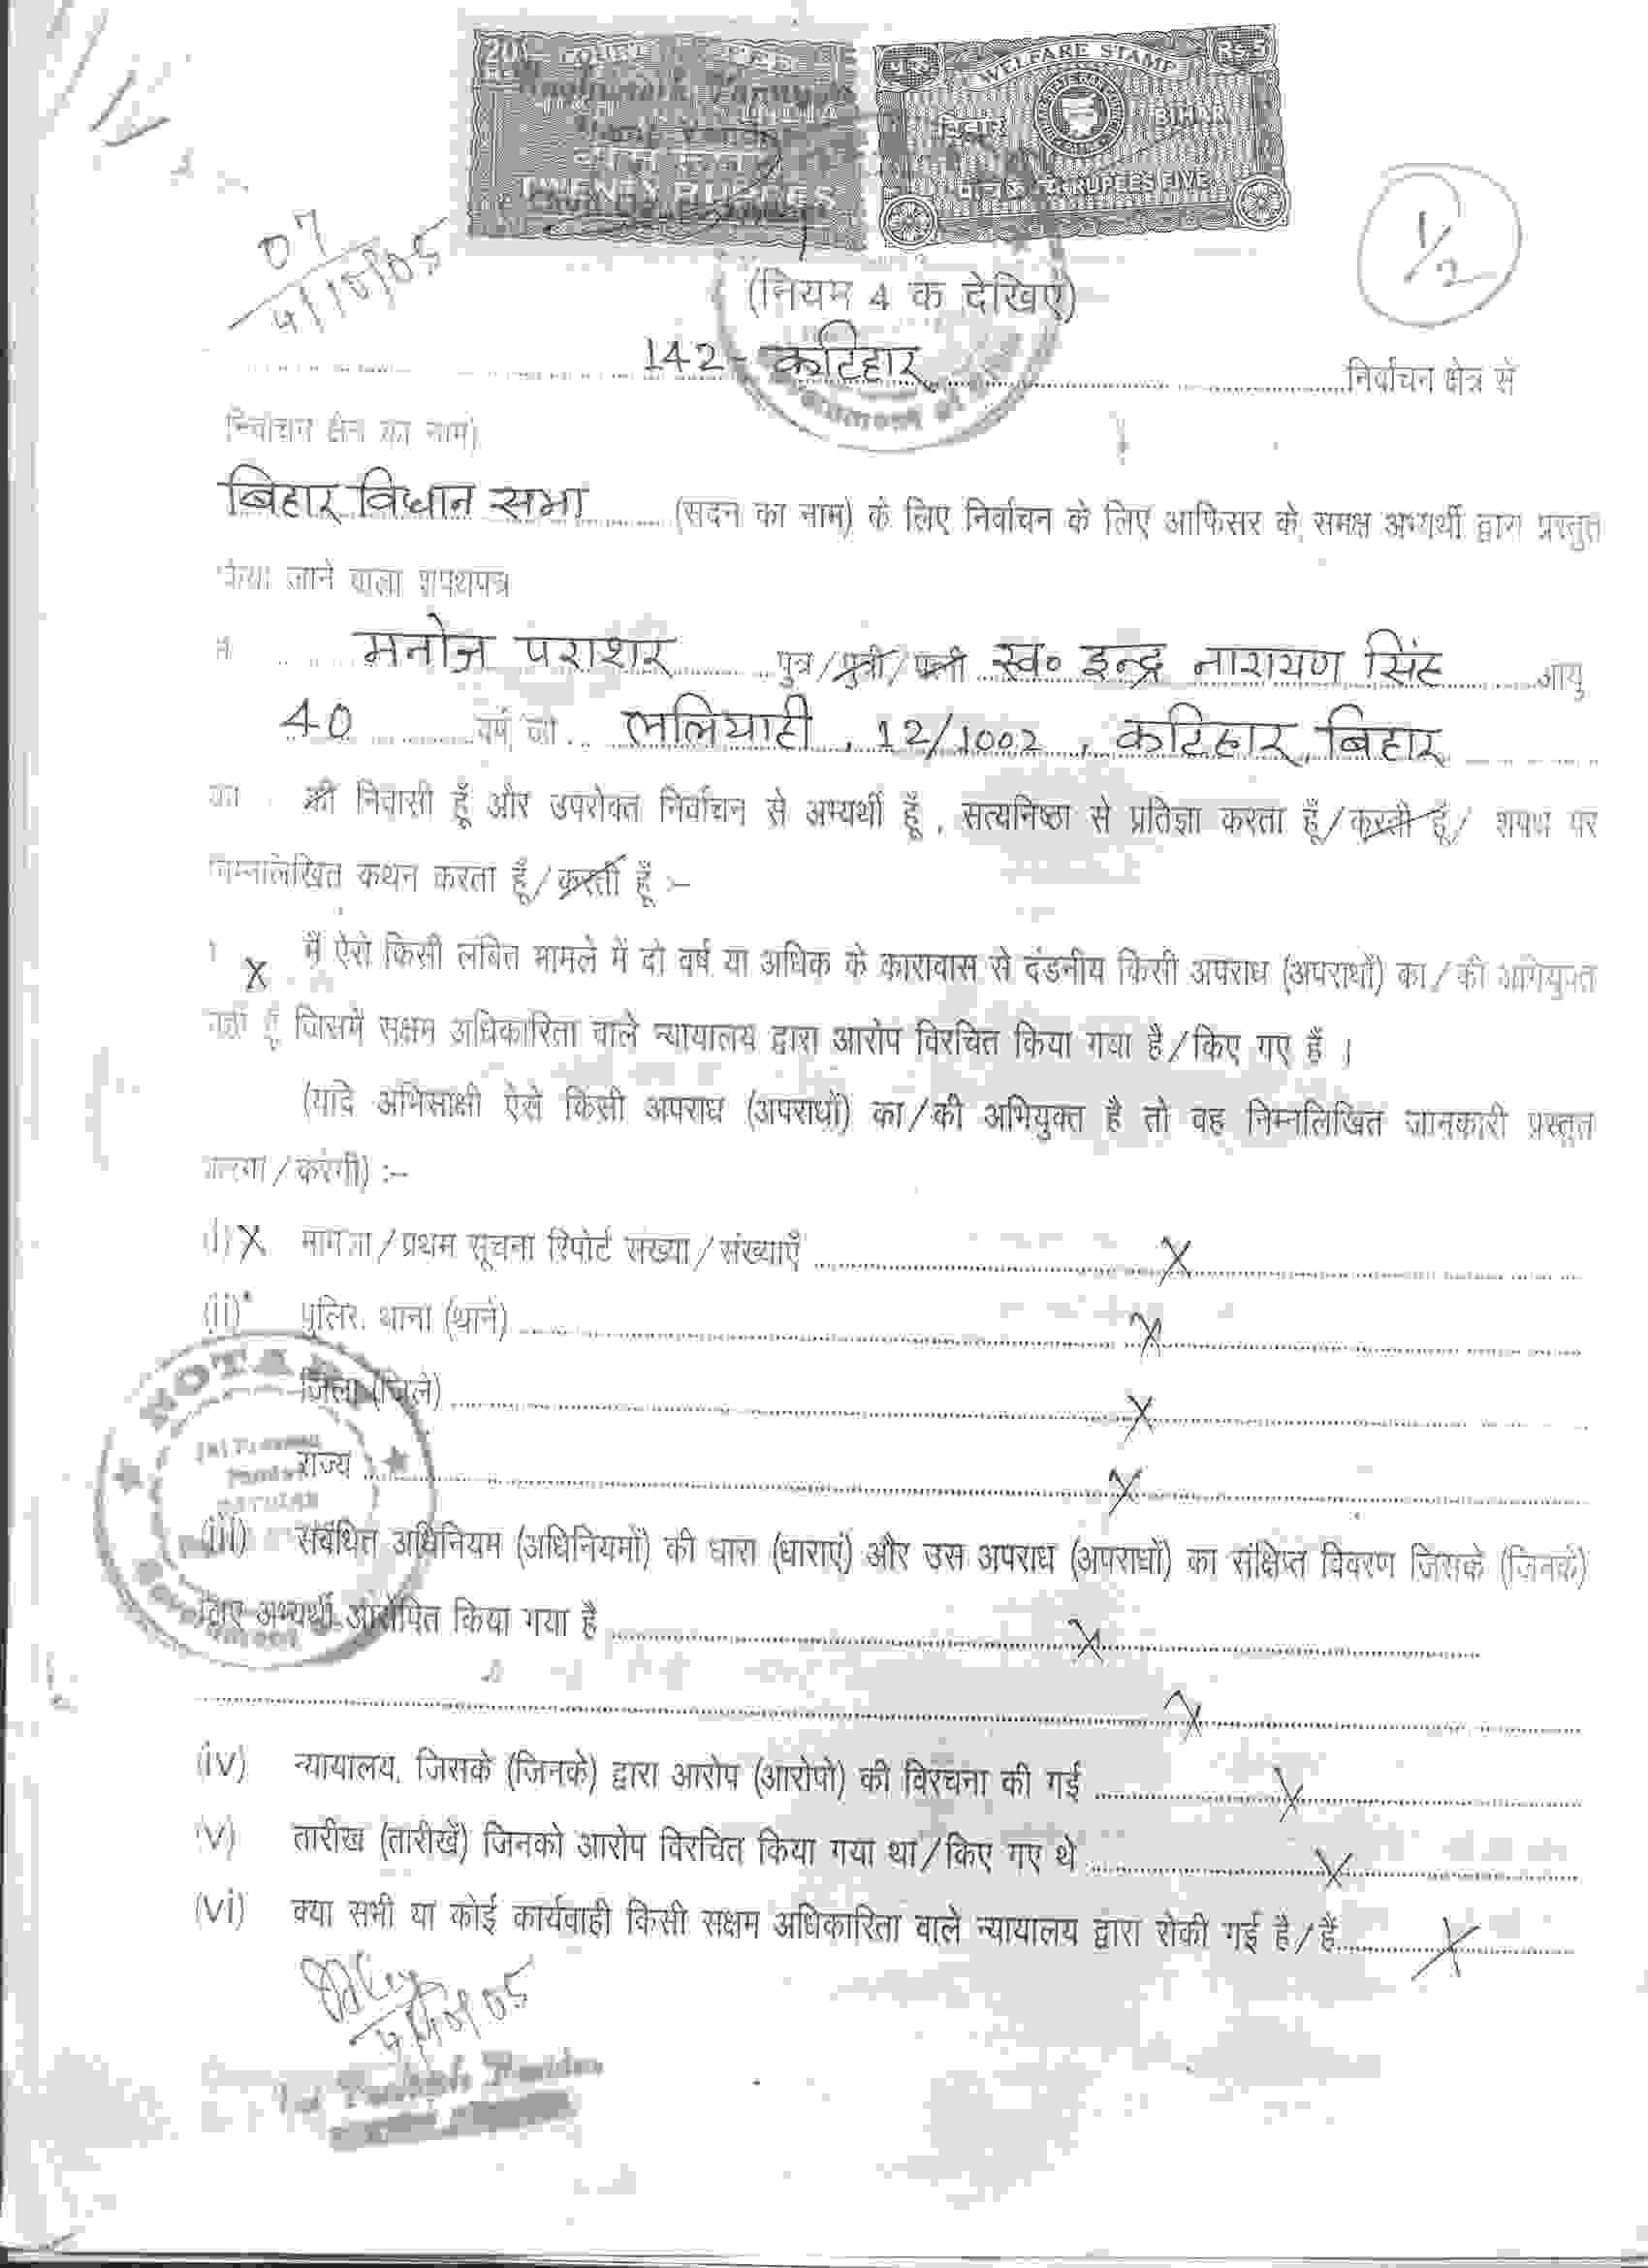 20
COURT FEE
TWENTY RUPEES
WELFARE STAMP
Rs 5
BIHAR
RUPEES FIVE
1/2
07
4/10/05
(नियम 4 क देखिए)
142 - कटिहार निर्वाचन क्षेत्र से
निर्वाचन क्षेत्र का नाम)
बिहार विधान सभा (सदन का नाम) के लिए निर्वाचन के लिए आफिसर के समक्ष अभ्यर्थी द्वारा प्रस्तुत
किया जाने वाला शपथपत्र
मनोज पराशर पुत्र/पुत्री/पत्नी स्व० इन्द्र नारायण सिंह आयु
40 वर्ष का ललियाही, 12/1002, कटिहार, बिहार
का की निवासी हूँ और उपरोक्त निर्वाचन से अभ्यर्थी हूँ, सत्यनिष्ठा से प्रतिज्ञा करता हूँ/करती हूँ/ शपथ पर
निम्नलिखित कथन करता हूँ/करती हूँ :-
1 X मैं ऐसे किसी लंबित मामले में दो वर्ष या अधिक के कारावास से दंडनीय किसी अपराध (अपराधों) का/की अभियुक्त
नहीं हूँ जिसमें सक्षम अधिकारिता वाले न्यायालय द्वारा आरोप विरचित किया गया है/किए गए हैं ।
(यदि अभिसाक्षी ऐसे किसी अपराध (अपराधों) का/की अभियुक्त है तो वह निम्नलिखित जानकारी प्रस्तुत
करेगा/करेगी) :-
(i) X मामला/प्रथम सूचना रिपोर्ट संख्या/संख्याएँ X
(ii) पुलिस थाना (थाने) X
जिला (जिले) X
राज्य X
(iii) संबंधित अधिनियम (अधिनियमों) की धारा (धाराएं) और उस अपराध (अपराधों) का संक्षिप्त विवरण जिसके (जिनके)
लिए अभ्यर्थी आरोपित किया गया है X
X
(iv) न्यायालय, जिसके (जिनके) द्वारा आरोप (आरोपों) की विरचना की गई X
(v) तारीख (तारीखें) जिनको आरोप विरचित किया गया था/किए गए थे X
(vi) क्या सभी या कोई कार्यवाही किसी सक्षम अधिकारिता वाले न्यायालय द्वारा रोकी गई है/हैं X
NOTARY
Government
4/10/05